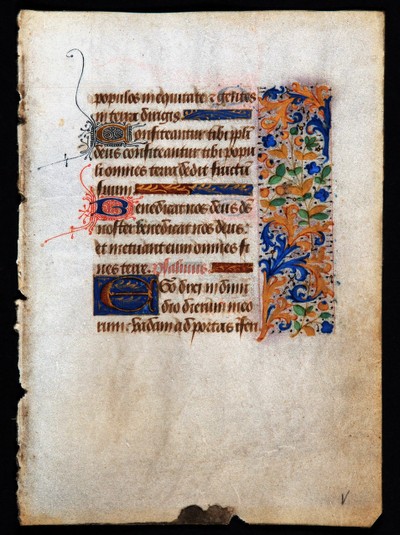 populos in equitate ⁊ gentes
in terra dirigis
Confiteantur tibi ppli
deus confiteantur tibi popu
li omnes terra dedit fructū
suum
Benedicat nos deus de⁹
noster benedicat nos deus
et metuant eum omnes fi
nes terre. Psalmus
EGo dixi in dimi
dio dierum meo
rum vadam ad portas īferi
V